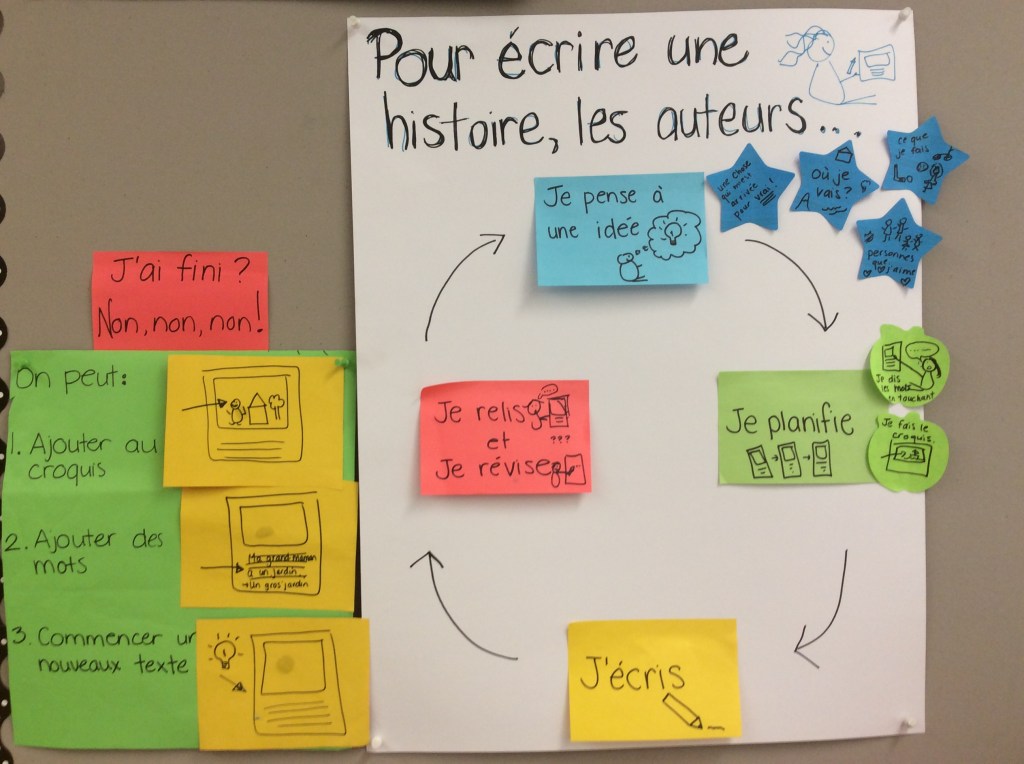 Pour écrire une
histoire, les auteurs....
Je pense à
une idée
une chose
qui m'est
arrivée
pour vrai!
où je
vais?
ce que
je fais
personnes
que
j'aime
Je planifie
Je dis
les mots
en touchant
Je fais le
croquis.
J'écris
Je relis
et
Je révise
???
J'ai fini?
Non, non, non!
On peut:
1. Ajouter au
croquis
2. Ajouter des
mots
Ma grand maman
a un jardin
→ Un gros jardin
3. Commencer un
nouveaux texte